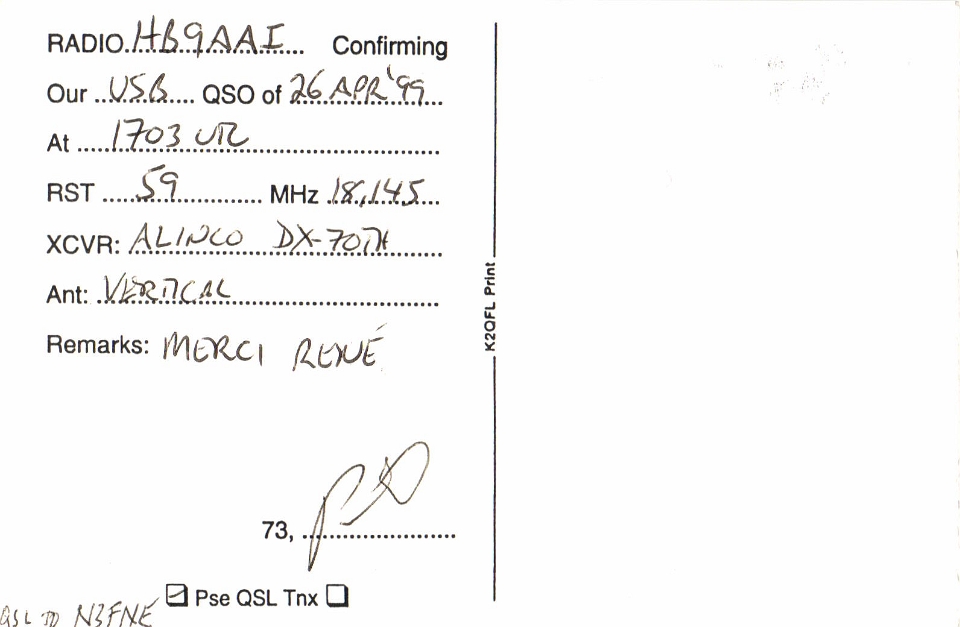 RADIO HB9AAI Confirming
Our USB QSO of 26 APR '99
At 1703 UTC
RST 59 MHz 18,145
XCVR: ALINCO DX-70TH
Ant: VERTICAL
Remarks: MERCI RENÉ
73,
Pse QSL Tnx
QSL TO N3FNE
K2QFL Print